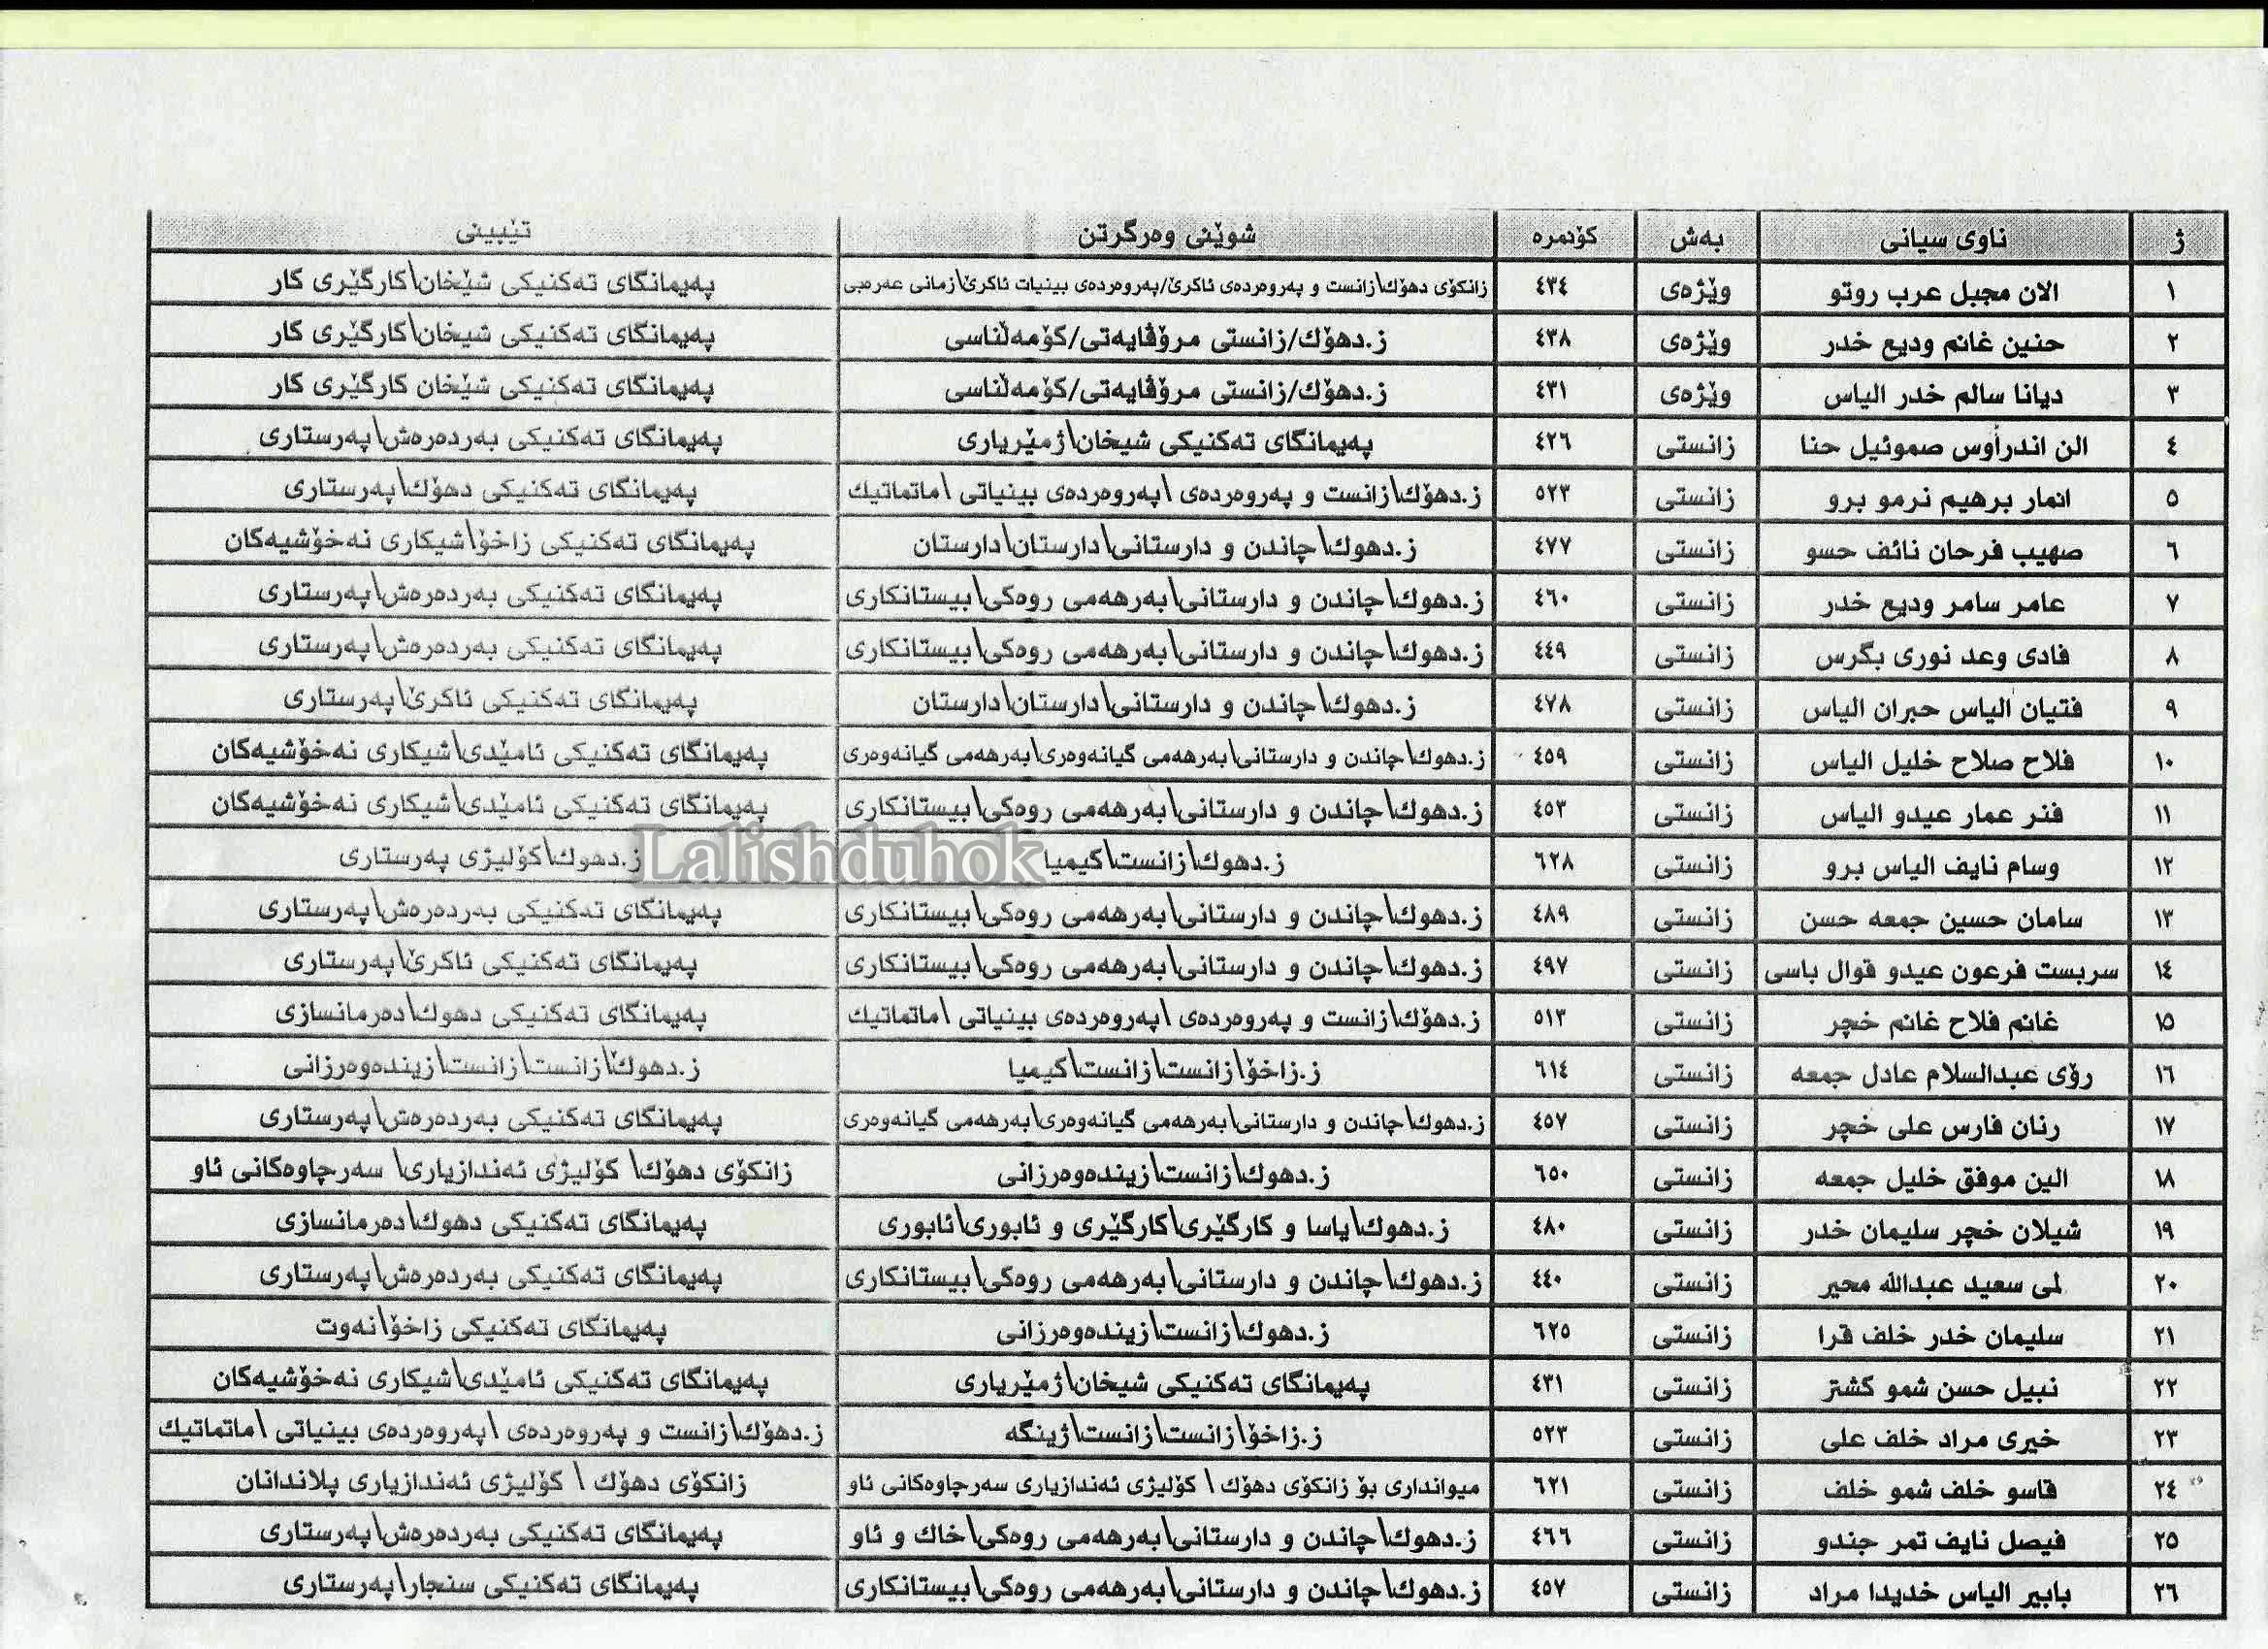 ژ ناوی سیانی بەش کۆنمرە شوێنی وەرگرتن تێبینی
١ الان مجبل عرب روتو وێژەی ٤٣٤ زانکۆی دهۆك\زانست و پەروەردەی ئاکرێ/پەروەردەی بینیات ئاکرێ\زمانی عەرەبی پەیمانگای تەکنیکی شێخان\کارگێری کار
٢ حنین غانم ودیع خدر وێژەی ٤٣٨ ز.دهۆك/زانستی مرۆڤایەتی/کۆمەڵناسی پەیمانگای تەکنیکی شیخان\کارگێری کار
٣ دیانا سالم خدر الیاس وێژەی ٤٣١ ز.دهۆك/زانستی مرۆڤایەتی/کۆمەڵناسی پەیمانگای تەکنیکی شێخان کارگێری کار
٤ الن اندرأوس صموئیل حنا زانستی ٤٢٦ پەیمانگای تەکنیکی شیخان\ژمێریاری پەیمانگای تەکنیکی بەردەرەش\پەرستاری
٥ انمار برهیم نرمو برو زانستی ٥٢٣ ز.دهۆك\زانست و پەروەردەی \پەروەردەی بینیاتی \ماتماتیك پەیمانگای تەکنیکی دهۆك\پەرستاری
٦ صهیب فرحان نائف حسو زانستی ٤٧٧ ز.دهوك\چاندن و دارستانی\دارستان\دارستان پەیمانگای تەکنیکی زاخۆ\شیکاری نەخۆشیەکان
٧ عامر سامر ودیع خدر زانستی ٤٦٠ ز.دهوك\چاندن و دارستانی\بەرهەمی روەکی\بیستانکاری پەیمانگای تەکنیکی بەردەرەش\پەرستاری
٨ فادی وعد نوری بگرس زانستی ٤٤٩ ز.دهوك\چاندن و دارستانی\بەرهەمی روەکی\بیستانکاری پەیمانگای تەکنیکی بەردەرەش\پەرستاری
٩ فتیان الیاس حبران الیاس زانستی ٤٧٨ ز.دهوك\چاندن و دارستانی\دارستان\دارستان پەیمانگای تەکنیکی ئاکرێ\پەرستاری
١٠ فلاح صلاح خلیل الیاس زانستی ٤٥٩ ز.دهوك\چاندن و دارستانی\بەرهەمی گیانەوەری\بەرهەمی گیانەوەری پەیمانگای تەکنیکی ئامێدی\شیکاری نەخۆشیەکان
١١ فنر عمار عیدو الیاس زانستی ٤٥٣ ز.دهوك\چاندن و دارستانی\بەرهەمی روەکی\بیستانکاری پەیمانگای تەکنیکی ئامێدی\شیکاری نەخۆشیەکان
١٢ وسام نایف الیاس برو زانستی ٦٢٨ ز.دهوك\زانست\کیمیا ز.دهوك\کۆلیژی پەرستاری
Lalishduhok
١٣ سامان حسین جمعه حسن زانستی ٤٨٩ ز.دهوك\چاندن و دارستانی\بەرهەمی روەکی\بیستانکاری پەیمانگای تەکنیکی بەردەرەش\پەرستاری
١٤ سربست فرعون عیدو قوال باسی زانستی ٤٩٧ ز.دهوك\چاندن و دارستانی\بەرهەمی روەکی\بیستانکاری پەیمانگای تەکنیکی ئاکرێ\پەرستاری
١٥ غانم فلاح غانم خچر زانستی ٥١٣ ز.دهۆك\زانست و پەروەردەی \پەروەردەی بینیاتی \ماتماتیك پەیمانگای تەکنیکی دهوك\دەرمانسازی
١٦ رۆی عبدالسلام عادل جمعه زانستی ٦١٤ ز.زاخۆ\زانست\زانست\کیمیا ز.دهوك\زانست\زانست\زیندەوەرزانی
١٧ رنان فارس علی خچر زانستی ٤٥٧ ز.دهوك\چاندن و دارستانی\بەرهەمی گیانەوەری\بەرهەمی گیانەوەری پەیمانگای تەکنیکی بەردەرەش\پەرستاری
١٨ الین موفق خلیل جمعه زانستی ٦٥٠ ز.دهوك\زانست\زیندەوەرزانی زانکۆی دهۆك\ کۆلیژی ئەندازیاری\ سەرچاوەکانی ئاو
١٩ شیلان خچر سلیمان خدر زانستی ٤٨٠ ز.دهوك\یاسا و کارگێری\کارگێری و ئابوری\ئابوری پەیمانگای تەکنیکی دهوك\دەرمانسازی
٢٠ لمی سعید عبدالله محیر زانستی ٤٤٠ ز.دهوك\چاندن و دارستانی\بەرهەمی روەکی\بیستانکاری پەیمانگای تەکنیکی بەردەرەش\پەرستاری
٢١ سلیمان خدر خلف قرا زانستی ٦٢٥ ز.دهوك\زانست\زیندەوەرزانی پەیمانگای تەکنیکی زاخۆ\نەوت
٢٢ نبیل حسن شمو کشتز زانستی ٤٣١ پەیمانگای تەکنیکی شیخان\ژمێریاری پەیمانگای تەکنیکی ئامێدی\شیکاری نەخۆشیەکان
٢٣ خیری مراد خلف علی زانستی ٥٢٣ ز.زاخۆ\زانست\زانست\ژینگە ز.دهۆك\زانست و پەروەردەی \پەروەردەی بینیاتی \ماتماتیك
٢٤ قاسو خلف شمو خلف زانستی ٦٢١ میوانداری بۆ زانکۆی دهۆك \ کۆلیژی ئەندازیاری سەرچاوەکانی ئاو زانکۆی دهۆك \ کۆلیژی ئەندازیاری پلاندانان
٢٥ فیصل نایف تمر جندو زانستی ٤٦٦ ز.دهوك\چاندن و دارستانی\بەرهەمی روەکی\خاك و ئاو پەیمانگای تەکنیکی بەردەرەش\پەرستاری
٢٦ بابیر الیاس خدیدا مراد زانستی ٤٥٧ ز.دهوك\چاندن و دارستانی\بەرهەمی روەکی\بیستانکاری پەیمانگای تەکنیکی سنجار\پەرستاری